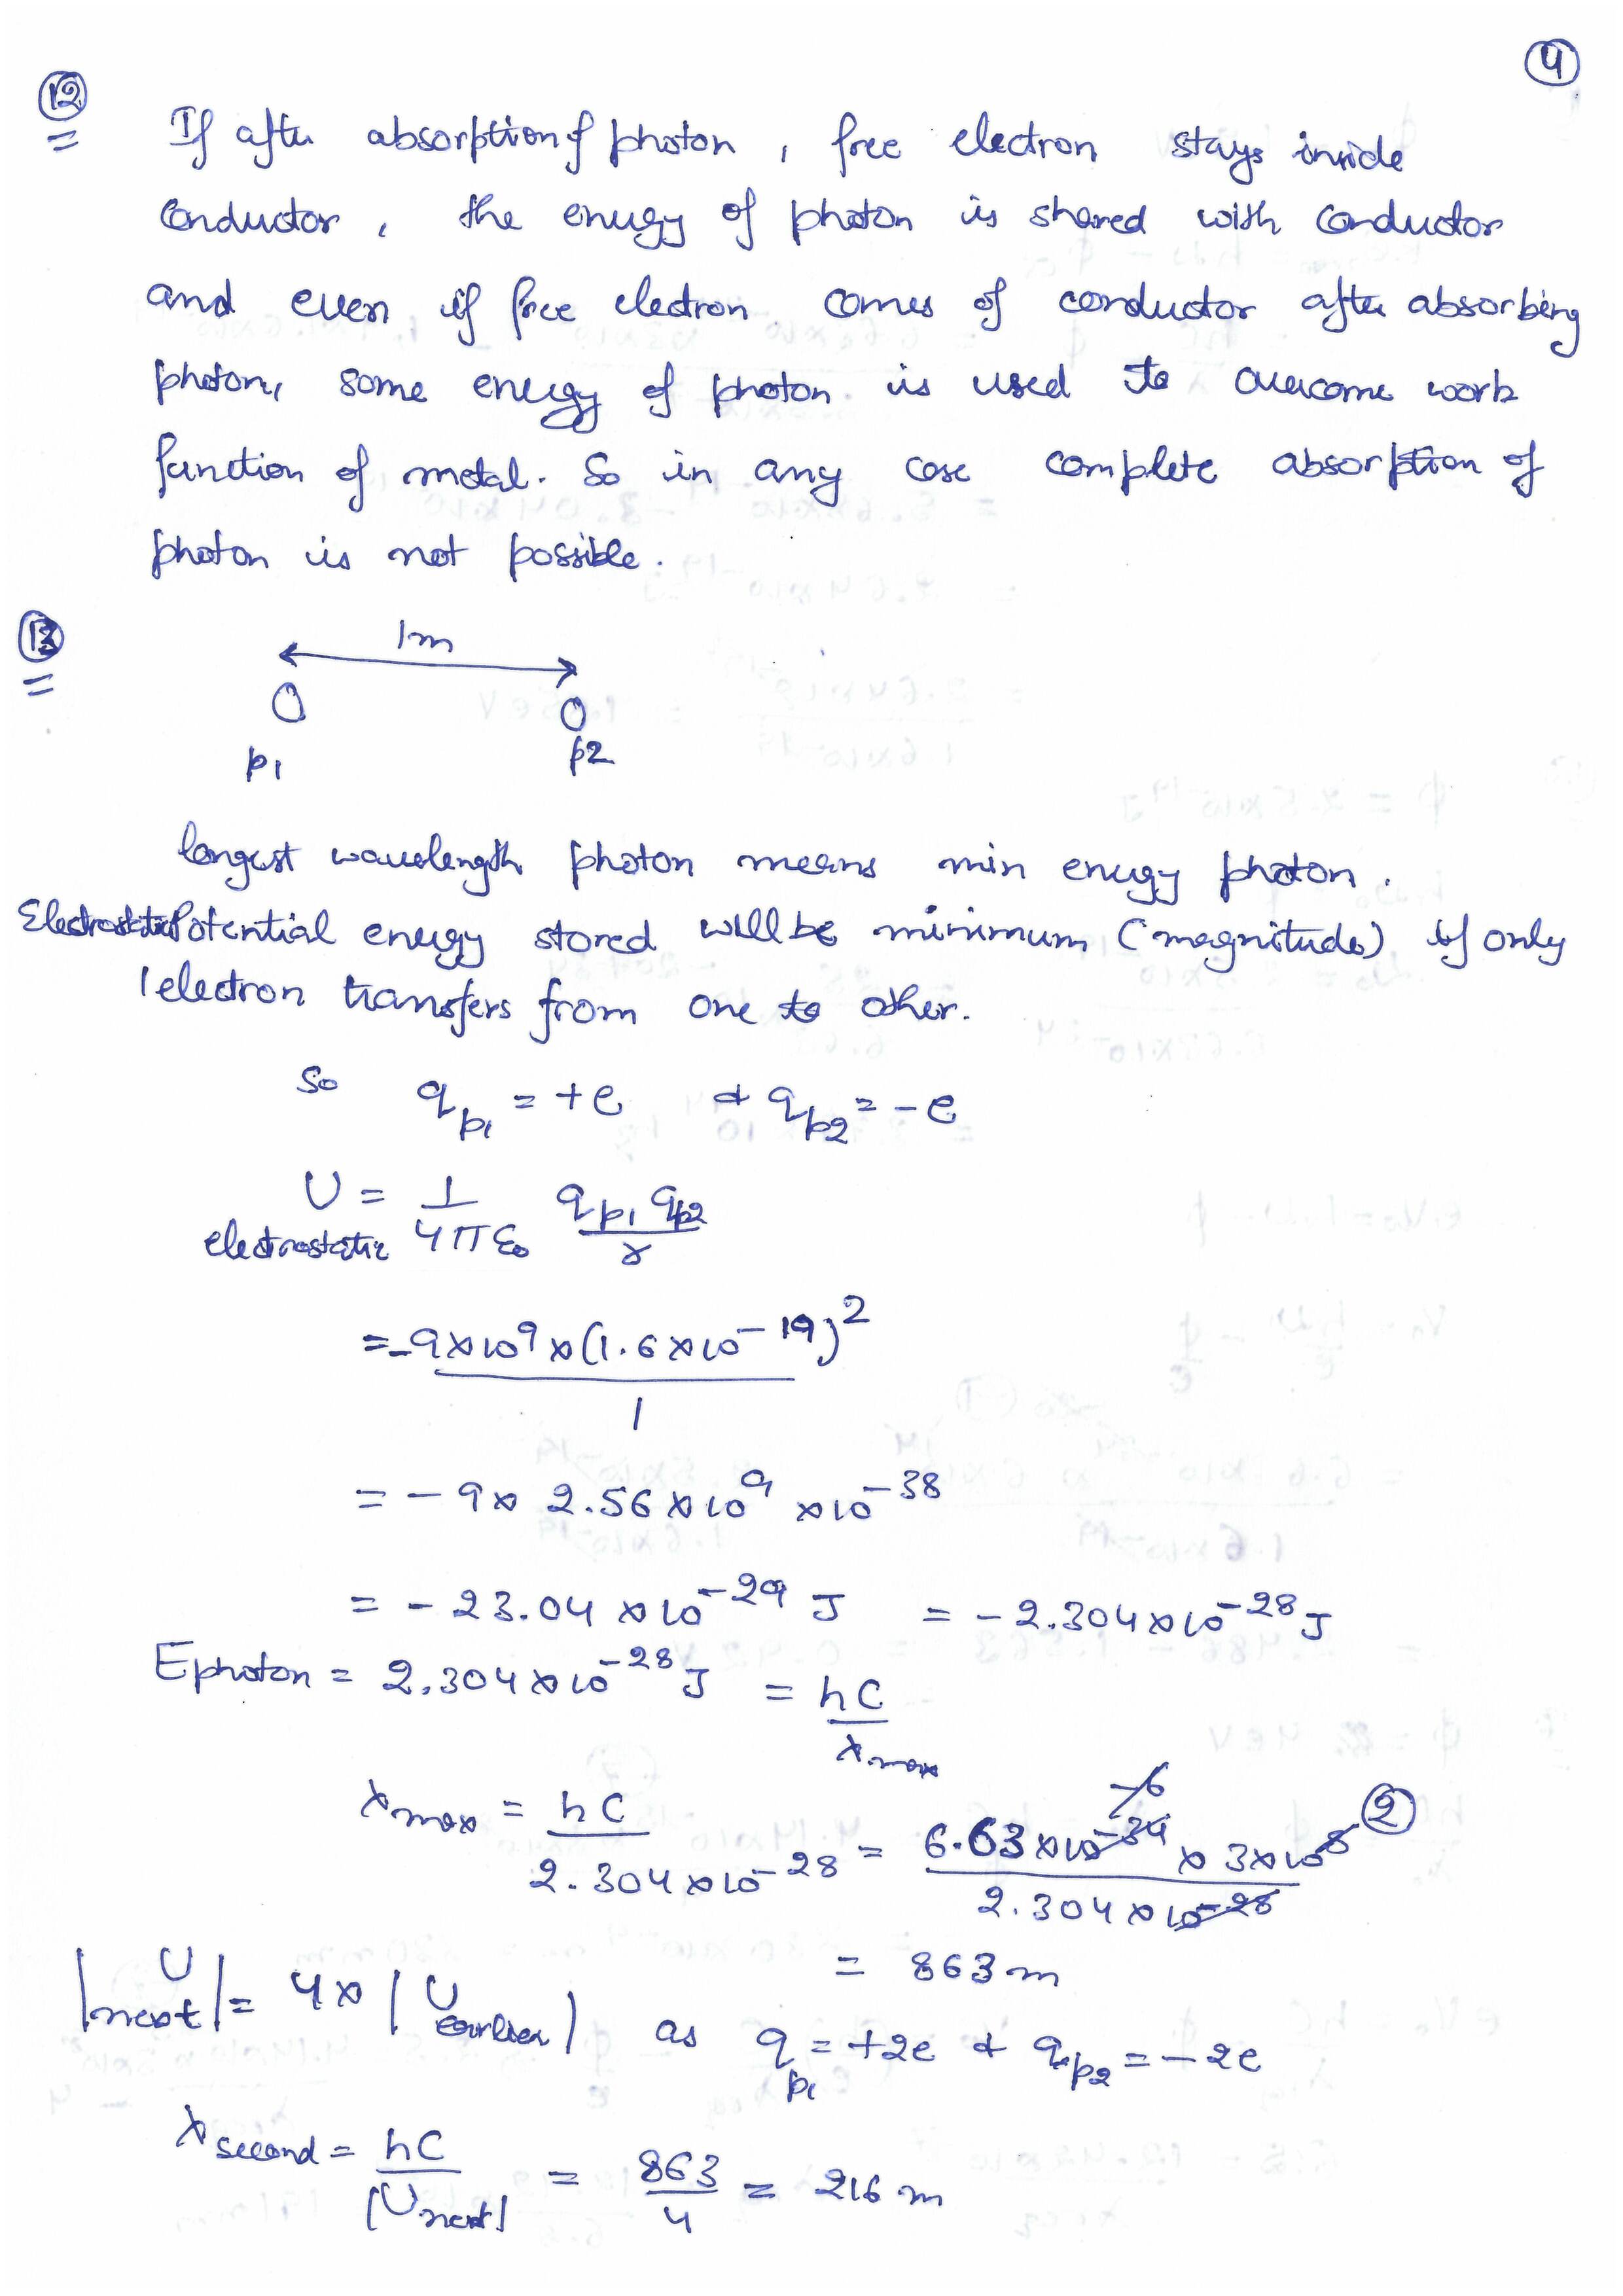 4
12
If after absorption of photon, free electron stays inside
conductor, the energy of photon is shared with conductor
and even if free electron comes of conductor after absorbing
photon, some energy of photon is used to overcome work
function of metal. So in any case complete absorption of
photon is not possible.
13
1m
p1 p2
longest wavelength photon means min energy photon.
Electrostatic Potential energy stored will be minimum (magnitude) if only
1 electron transfers from one to other.
So q_p1 = +e & q_p2 = -e
U electrostatic = 1/4πε₀ q_p1 q_p2/r
= -9×10⁹×(1.6×10⁻¹⁹)²/1
= -9× 2.56×10⁹ ×10⁻³⁸
= -23.04×10⁻²⁹ J = -2.304×10⁻²⁸ J
E photon = 2.304×10⁻²⁸ J = hC/λmax
λmax = hC/2.304×10⁻²⁸ = 6.63×10⁻³⁴ × 3×10⁸/2.304×10⁻²⁸ -6 2
= 863 m
|U next| = 4× |U earlier| as q_p1 = +2e & q_p2 = -2e
λ second = hC/|U next| = 863/4 = 216 m